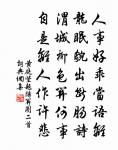 人事好乖當語離
龍眠貌出斷腸詩
渭城柳色關何事
自是離人作許悲
黃庭堅題陽關圖二首
詞典網集